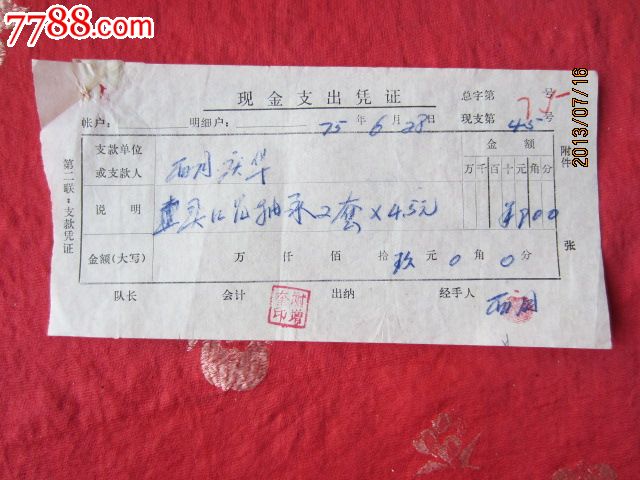 7788.com
现金支出凭证
总字第 75 号
帐户: 明细户: 75年6月28日 现支第 45 号
支款单位或支款人 金额
万千百十元角分
说明 轴承2套×4.5元 ¥900
金额(大写) 万仟佰拾玖元0角0分
附件 张
第二联:支款凭证
队长 会计 出纳 经手人
2013/07/16